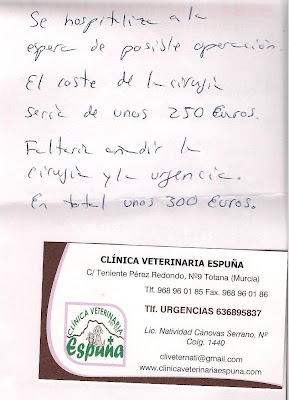 Se hospitaliza a la
espera de posible operación.
El coste de la cirugía
seria de unos 250 Euros.
Faltaria añadir la
cirugia y la urgencia.
En total unos 300 Euros.
CLÍNICA VETERINARIA ESPUÑA
C/ Teniente Pérez Redondo, Nº9 Totana (Murcia)
Tlf. 968 96 01 85 Fax. 968 96 01 86
Tlf. URGENCIAS 636895837
Lic. Natividad Cánovas Serrano, Nº
Colg. 1440
cliveternati@gmail.com
www.clinicaveterinariaespuna.com
CLÍNICA VETERINARIA
Espuña